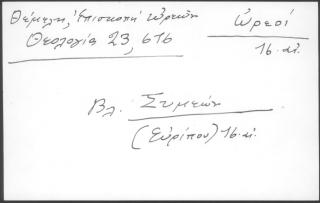 Θέμελη, Ἐπισκοπὴ Ὠρεῶν
Θεολογία 23, 616
Ὠρεοί
16. αἰ.
Βλ. Συμεών
(Εὐρίπου) 16. αἰ.